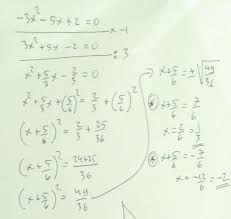 -3x² - 5x + 2 = 0
x -1
3x² + 5x - 2 = 0
: 3
x² + 5/3 x - 2/3 = 0
x² + 5/3 x + (5/6)² = 2/3 + (5/6)²
(x + 5/6)² = 2/3 + 25/36
(x + 5/6)² = 24+25/36
(x + 5/6)² = 49/36
x + 5/6 = ± √49/36
x + 5/6 = 7/6
x = 2/6 = 1/3
x + 5/6 = -7/6
x = -12/6 = -2